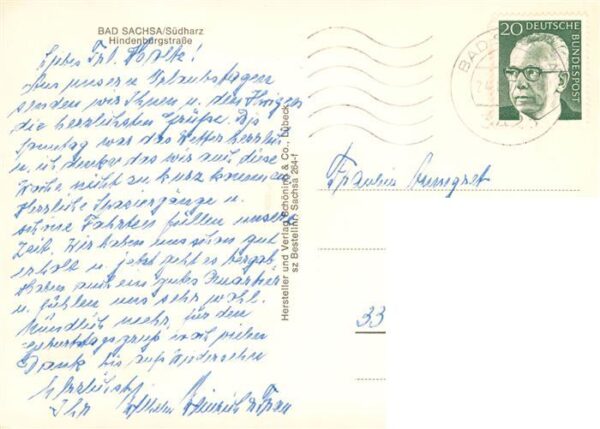 BAD SACHSA/Südharz
Hindenburgstraße
Liebes Frl. Holtz!
Aus unseren Urlaubstagen
senden wir Ihnen u. den Ihrigen
die herzlichsten Grüße. Bis
Sonntag war das Wetter herrlich
u. ich denke das wir auch diese
Woche nicht zu kurz kommen
Herrliche Spaziergänge u.
schöne Fahrten füllen unsere
Zeit. Wir haben uns schon gut
erholt u. jetzt geht es bergab.
Haben auch ein gutes Quartier
u. fühlen uns sehr wohl.
Mündlich mehr, für den
Geburtstagsgruß noch vielen
Dank bis auf Wiedersehn
Herzlichst
Ihr Wilhelm Heinrich u. Frau
Hersteller und Verlag Schöning & Co., Lübeck
sz Bestell-Nr. Sachsa 264-f
20 DEUTSCHE
BUNDESPOST
BAD
Fräulein Annegret
33